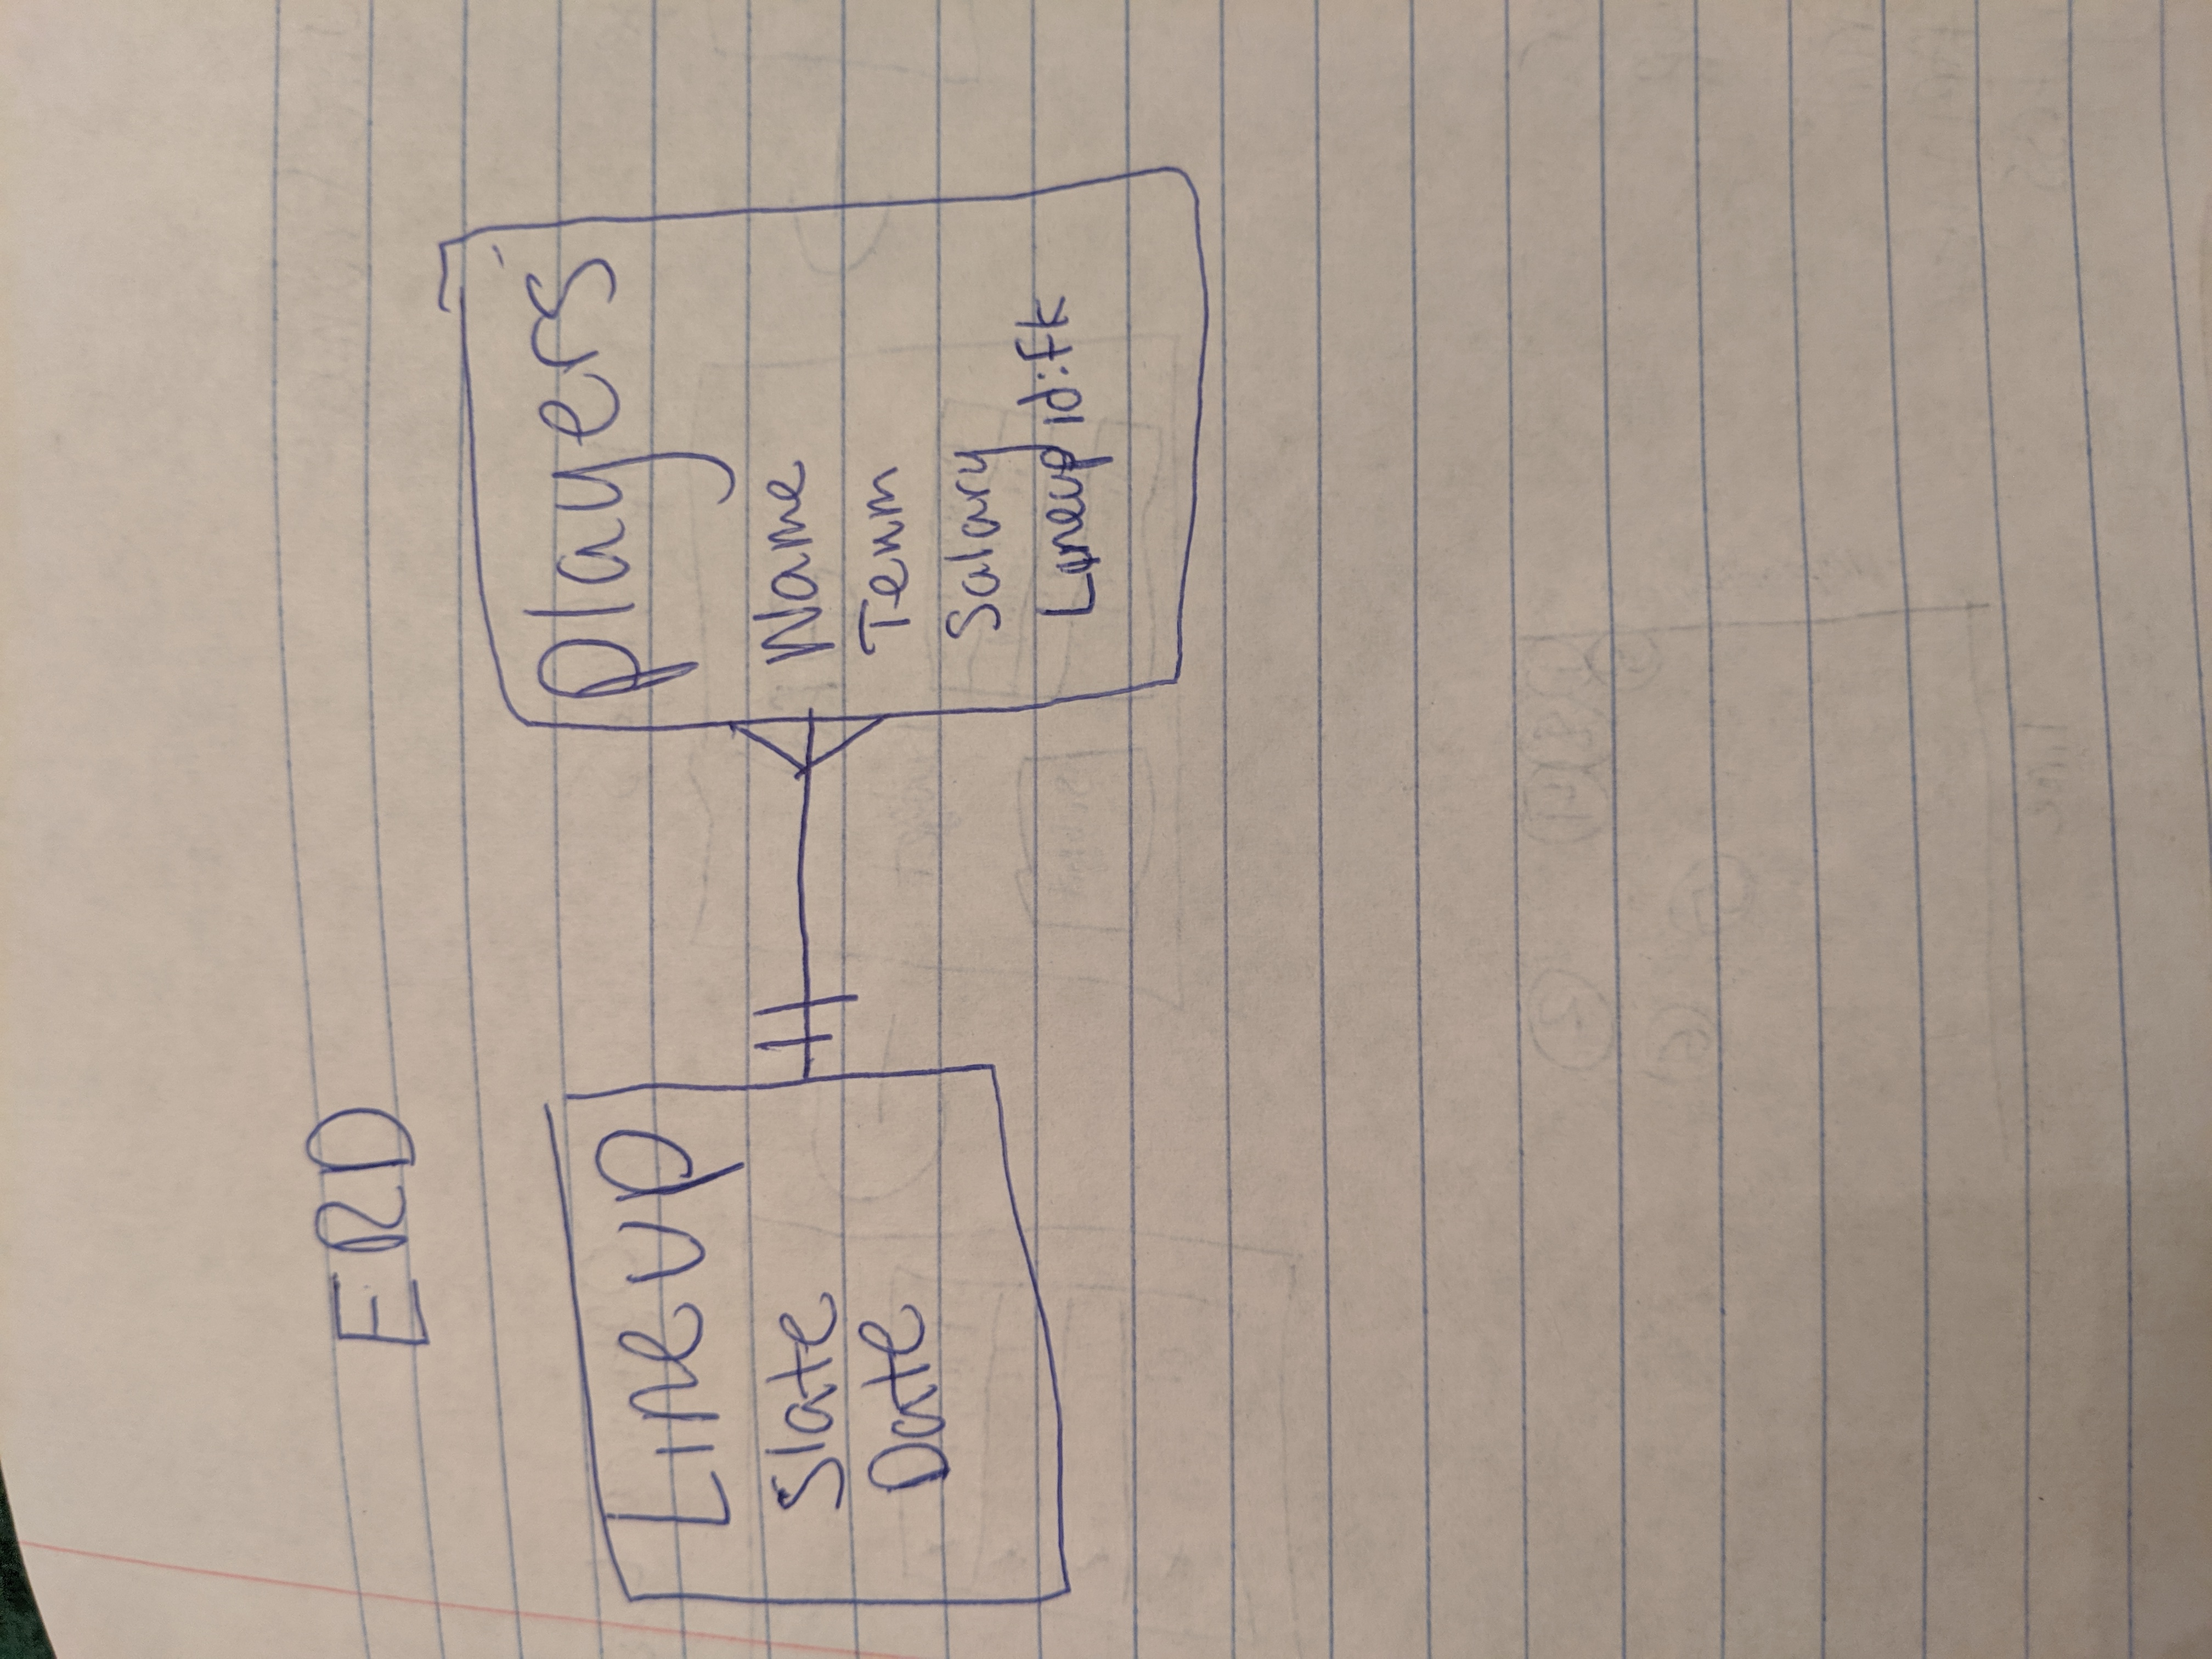 ERD
Lineup
Slate
Date
Players
Name
Team
Salary
Lineup id:FK